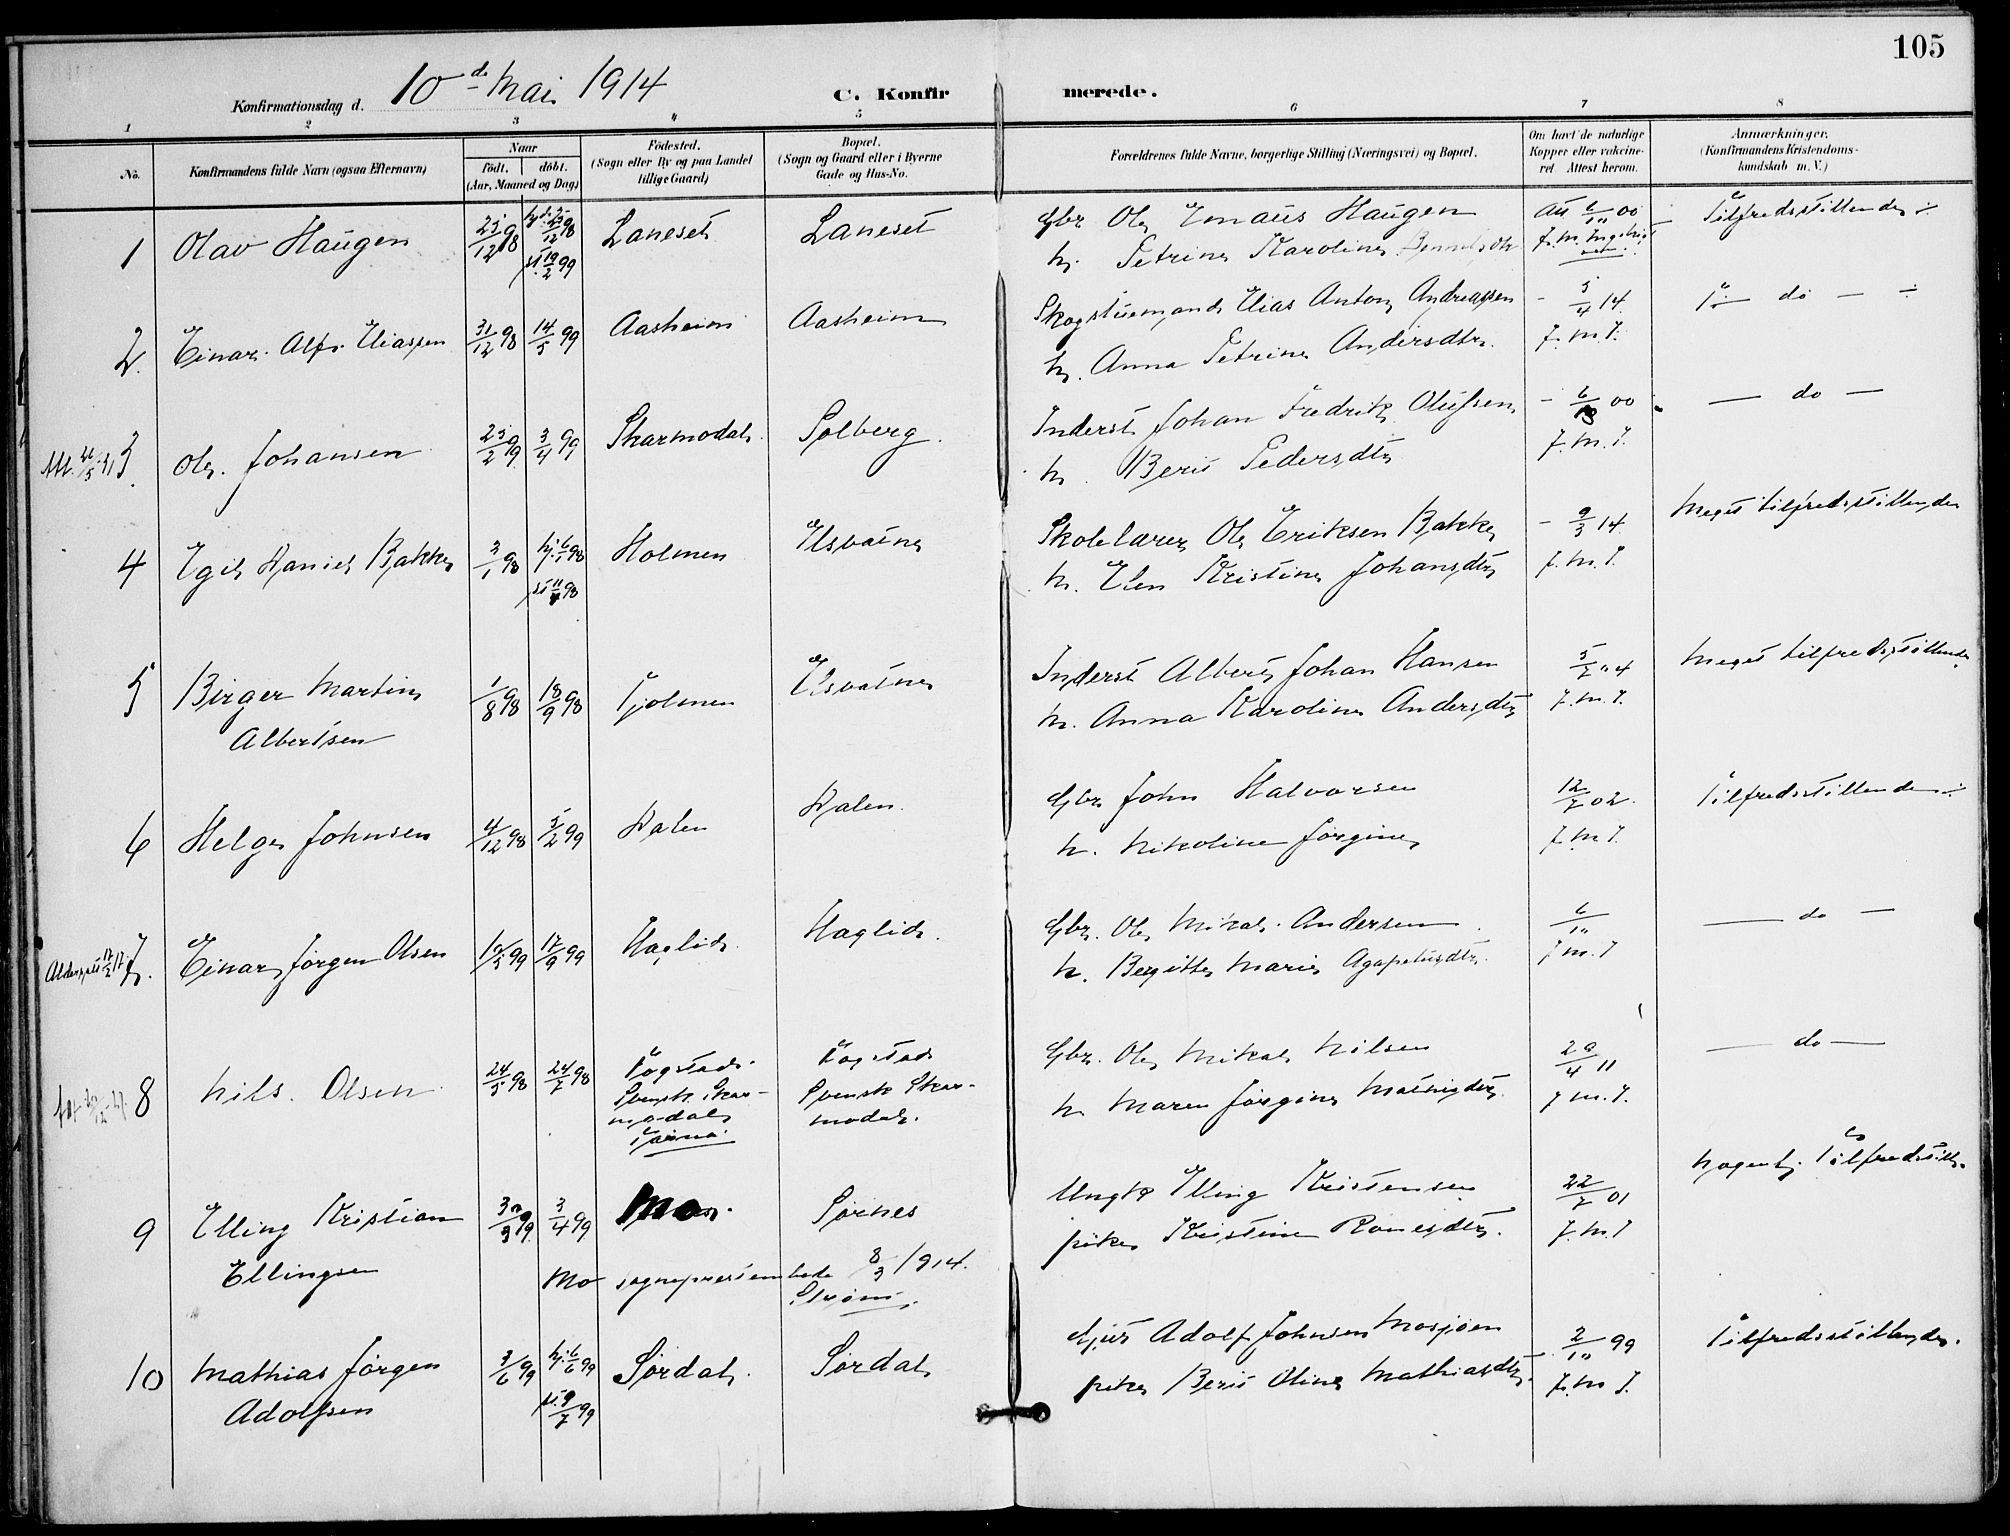 105
10de Mai 1914
Konfirmationsdag d.
C. Konfirmerede.
1 2 3 4 5 6 7 8
No.
Konfirmandens fulde Navn (ogsaa Efternavn)
Naar
født. døbt.
(Aar, Maaned og Dag)
Födested.
(Sogn eller By og paa Landet
tillige Gaard)
Bopæl.
(Sogn og Gaard eller i Byerne
Gade og Hus-No.
Forældrenes fulde Navne, borgerlige Stilling (Næringsvei) og Bopæl.
Om havt de naturlige
Kopper eller vakcine-
ret Attest herom.
Anmærkninger.
(Konfirmandens Kristendoms-
kundskab m. V.)
1 Olav Haugen 25/12 98 hj.d. 25/12 98 Laneset Laneset Gbr. Ole Emaus Haugen Att 6/10 00 Tilfredsstillende ÷
st 19/2 99 h. Petrine Karoline
2. Einar Alfr. Eliassen 31/12 98 14/5 99 Aasheim Aasheim Skogstuemand Elias Anton Andreassen - 5/4 14 T÷ do - ÷
h. Anna Petrine Andersdtr. J.M.I.
3. Ole Johansen 25/2 99 3/4 99 Skarmodal Solberg Inderst Johan Fredrik Olufsen - 00 — do —
h. Berit Pedersdtr J.M.I.
4 Egil Daniel Bakke 3/1 98 hj. 6/1 98 Holmen Elsvatne Skolelærer Ole Eriksen Bakke - 9/3 14 Meget tilfredsstillende
st 11/4 98 h. Elen Kristine Johansdtr J.M.I.
5 Birger Martin 1/8 98 18/9 98 Tjolmen Elsvatne Inderst Albert Johan Hansen 5/7 04 Meget tilfredsstillende
Albertsen h. Anna Karoline Andersdtr J.M.I.
6 Helge Johnsen 4/12 98 5/2 99 Dalen Dalen Gbr John Halvorsen 12/7 02 Tilfredsstillende ÷
h. Nikoline Jørgine J.M.I.
7. Einar Jørgen Olsen 10/5 99 17/9 99 Haglid Haglid Gbr. Ole Mikal Andersen 6/10 — do —
h. Bergitte Marie Agapetusdtr. J.M.I
8 Nils Olsen 24/5 98 24/7 98 Togstad Togstad Gbr. Ole Mikal Nilsen 29/4 11 — do —
Svensk Skar- Svensk Skar- h Maren Jørgine J.M.I.
modal modal.
Tärna.
9 Elling Kristian 30/3 99 3/4 99 Mo Sørnes Ungk Elling Kristensen 22/7 01 Nogenl. Tilfredsstill.
Ellingsen pike Kristine J.M.I
Mo sogneprestembede 8/3 1914.
Strøm
10 Mathias Jørgen 3/6 99 hj. 6/6 99 Sørdal Sørdal Gjift Adolf Johnsen Mosjøen 2/10 99 Tilfredsstillende.
Adolfsen st. 9/7 99 pike Berit Oline Mathiasdtr. J.M.I.